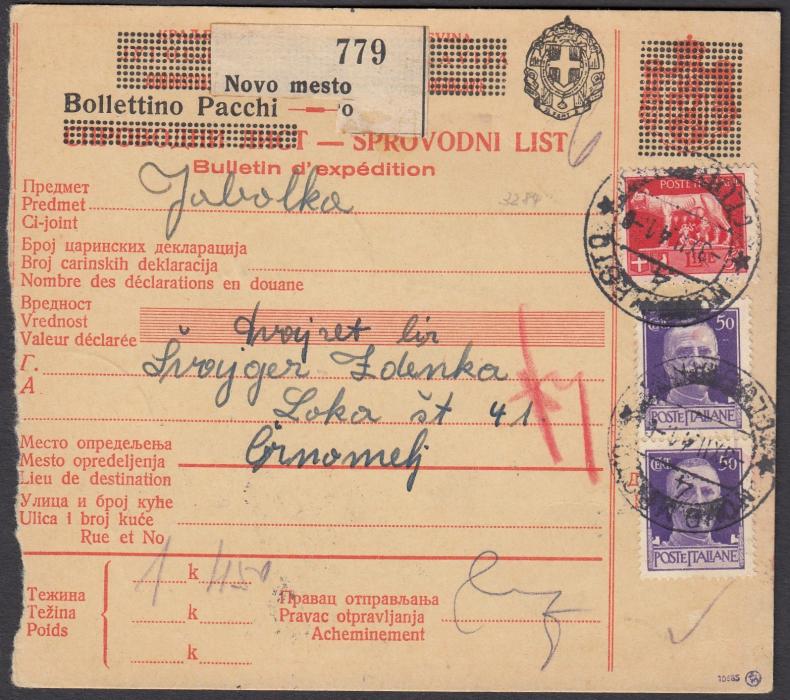 779
Novo mesto
Bollettino Pacchi
СПРОВОДНИ ЛИСТ — SPROVODNI LIST
6
Bulletin d'expédition
Предмет
Predmet
Ci-joint
Jabolka
3284
POSTE
LIRE
Број царинских декларација
Broj carinskih deklaracija
Nombre des déclarations en douane
Вредност
Vrednost
Valeur déclarée
dvajset lir
CENT. 50
POSTE ITALIANE
Г.
A
Švajger Zdenka
Loka št 41.
Črnomelj
Место опредељења
Mesto opredeljenja
Lieu de destination
CENT. 50
POSTE ITALIANE
Улица и број куће
Ulica i broj kuće
Rue et No
Тежина
Težina
Poids
1 k 1150
k
k
Правац отправљања
Pravac otpravljanja
Acheminement
10685